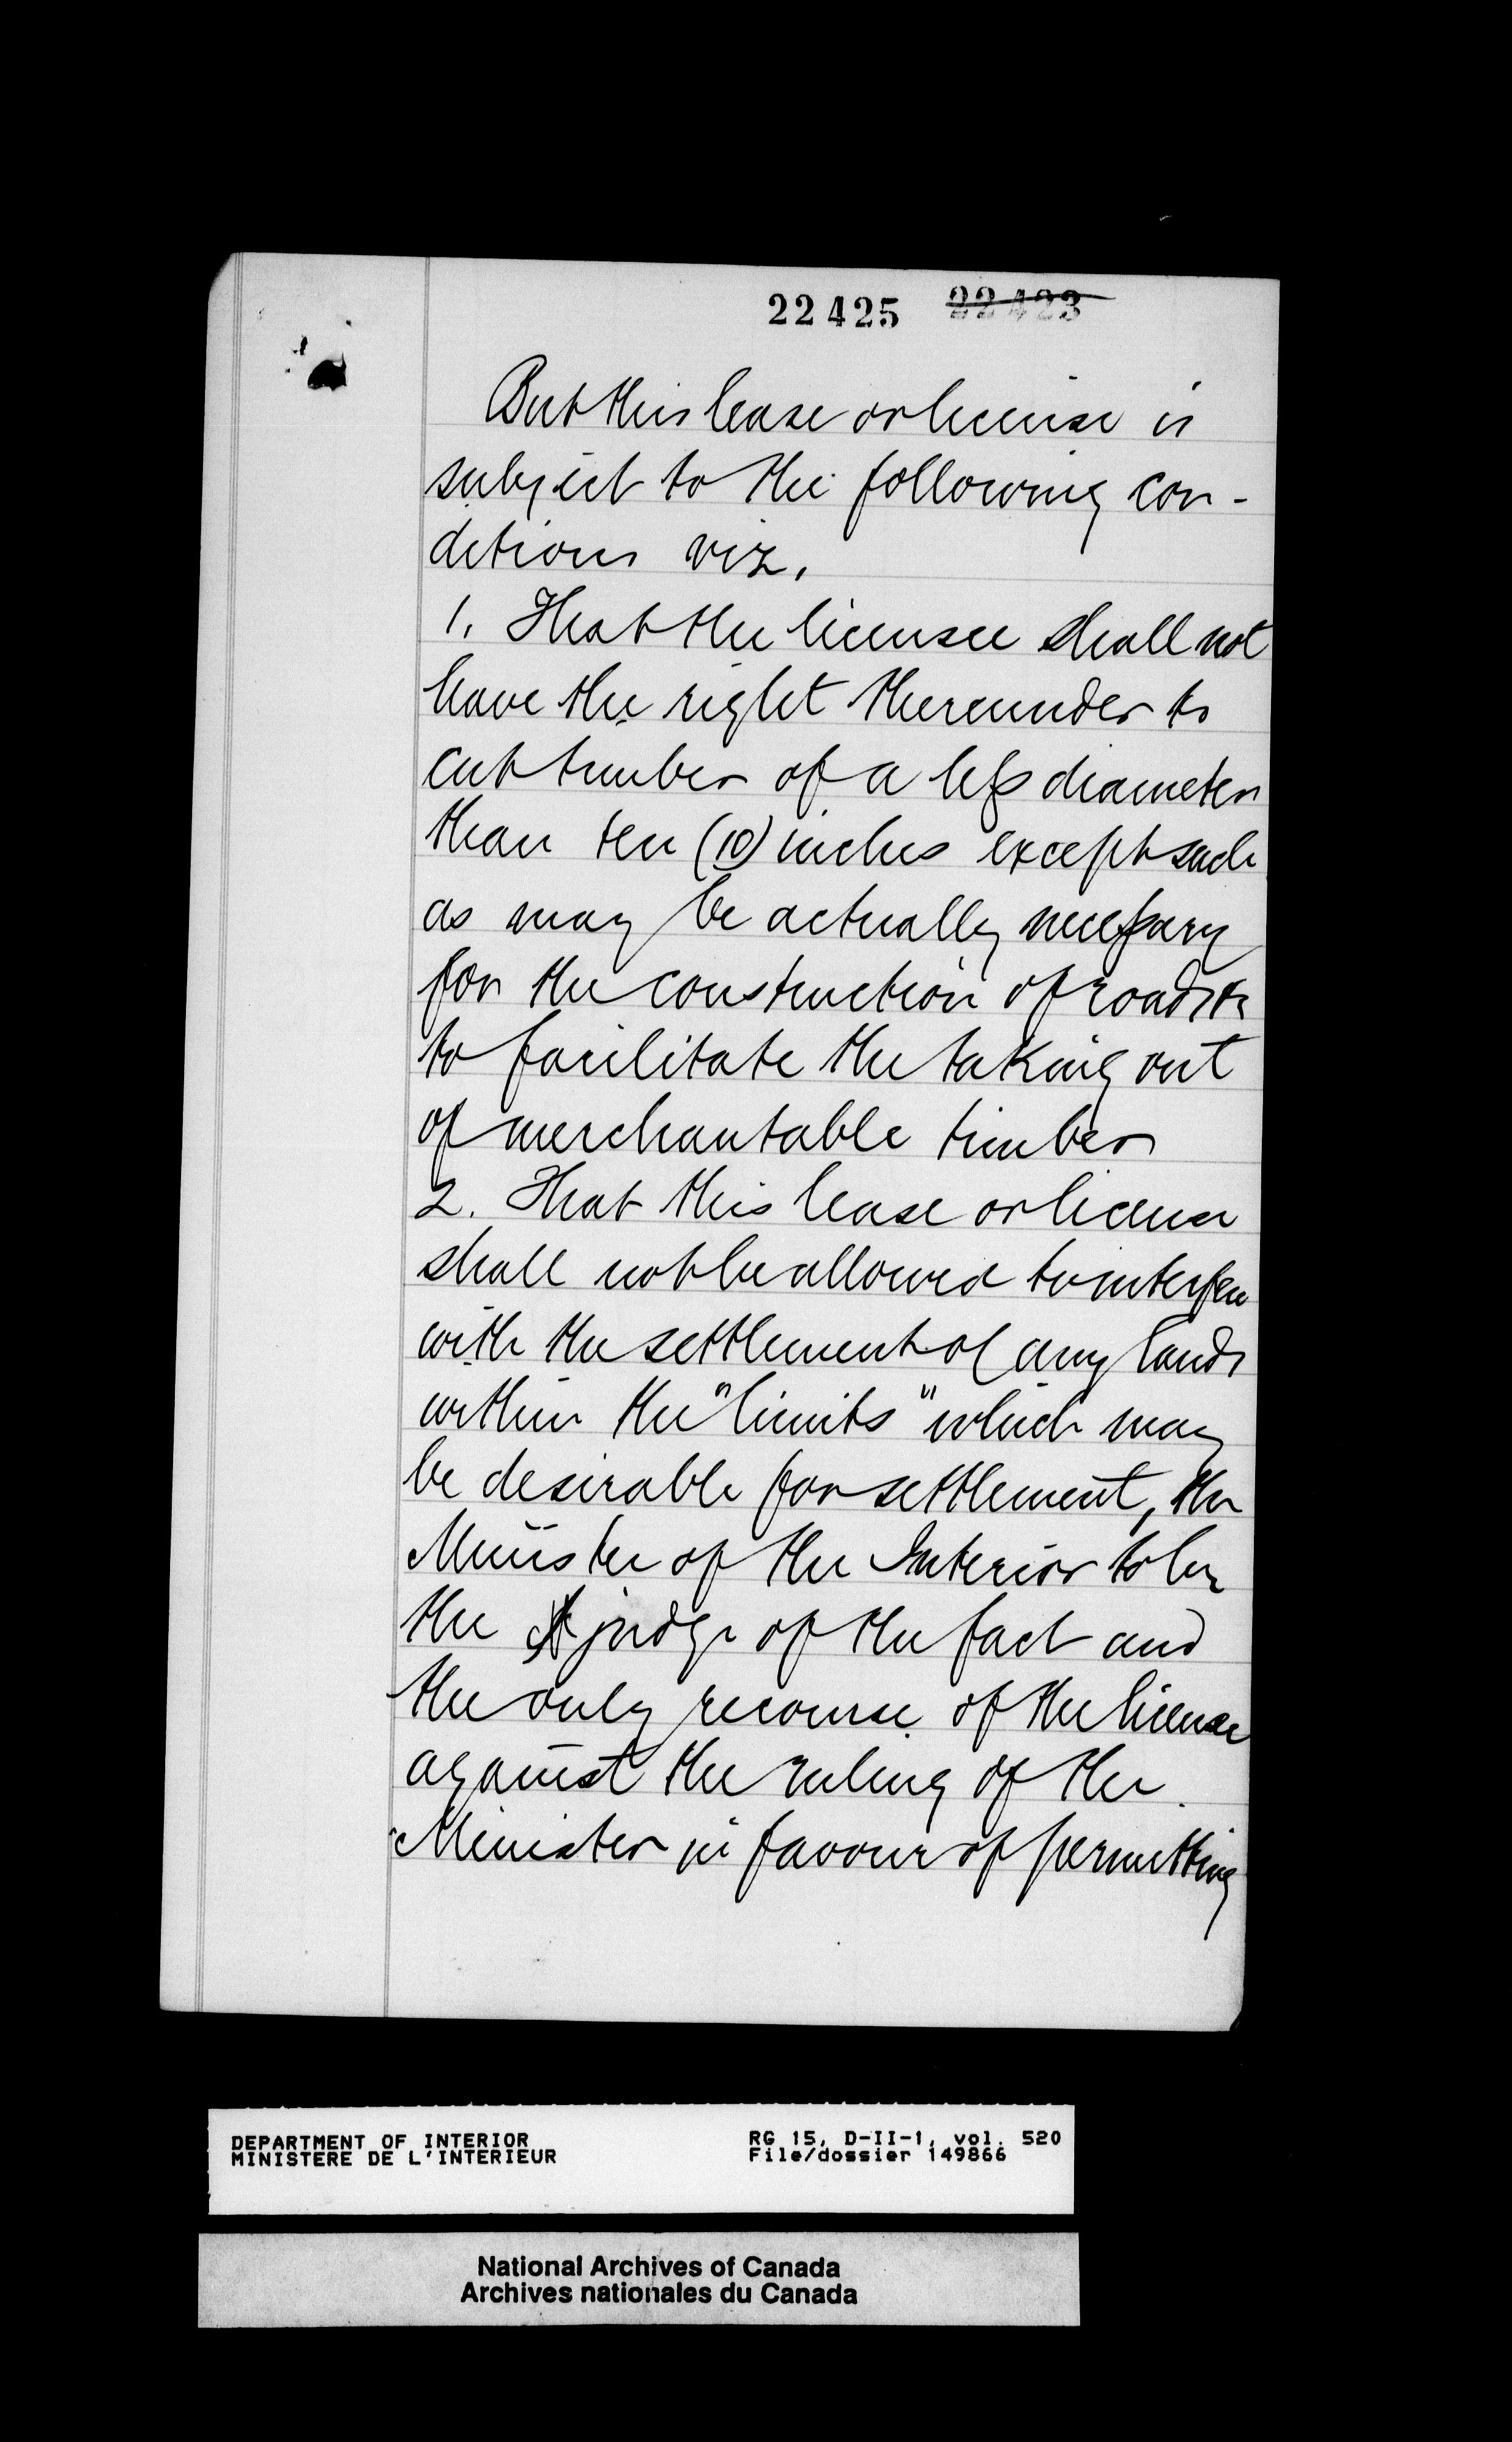 22425 22423
But this lease or license is
subject to the following con-
ditions viz.
1. That the licensee shall not
have the right thereunder to
cut timber of a less diameter
than ten (10) inches except such
as may be actually necessary
for the construction of roads
to facilitate the taking out
of merchantable timber
2. That this lease or license
shall not be allowed to interfere
with the settlement of any lands
within the "limits" which may
be desirable for settlement, the
Minister of the Interior to be
the judge of the fact and
the only recourse of the licensee
against the ruling of the
Minister in favour of permitting
DEPARTMENT OF INTERIOR RG 15, D-II-1, vol. 520
MINISTERE DE L'INTERIEUR File/dossier 149866
National Archives of Canada
Archives nationales du Canada